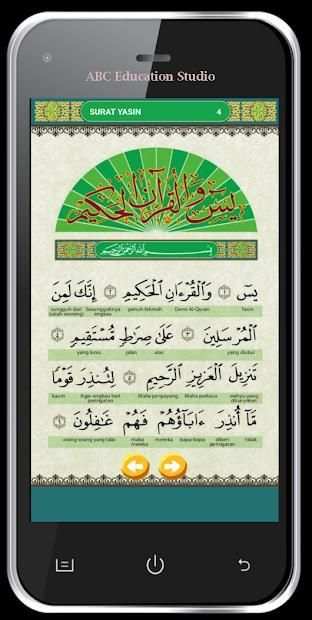 ABC Education Studio
SURAT YASIN 4
يس والقرآن الحكيم
بِسْمِ اللهِ الرَّحْمٰنِ الرَّحِيْمِ
يسٓ ١ وَالْقُرْءَانِ الْحَكِيمِ ٢ إِنَّكَ لَمِنَ
Yasin Demi Al-Quran penuh hikmah sesungguhnya engkau sungguh dari (salah seorang)
الْمُرْسَلِينَ ٣ عَلَىٰ صِرَاطٍ مُّسْتَقِيمٍ ٤
yang diutus atas jalan yang lurus
تَنزِيلَ الْعَزِيزِ الرَّحِيمِ ٥ لِتُنذِرَ قَوْمًا
wahyu yang diturunkan Maha perkasa Maha penyayang Agar engkau beri peringatan kaum
مَّآ أُنذِرَ ءَابَآؤُهُمْ فَهُمْ غَافِلُونَ ٦
tidak diberi peringatan bapa-bapa mereka maka mereka orang-orang yang lalai